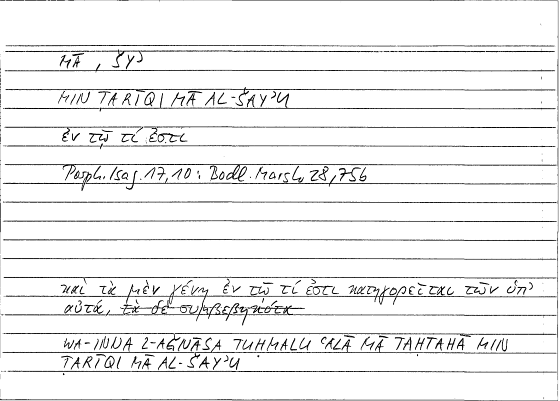 MĀ , ŠYʾ
MIN ṬARĪQI MĀ AL-ŠAYʾU
ἐν τῷ τί ἐστι
Porph. Isag. 17,10 : Bodl. Marsh 28,756
καὶ τὰ μὲν γένη ἐν τῷ τί ἐστι κατηγορεῖται τῶν ὑπ'
αὐτά, τὰ δὲ συμβεβηκότα
WA-INNA L-AǦNĀSA TUḤMALU ʿALĀ MĀ TAḤTAHĀ MIN
ṬARĪQI MĀ AL-ŠAYʾU